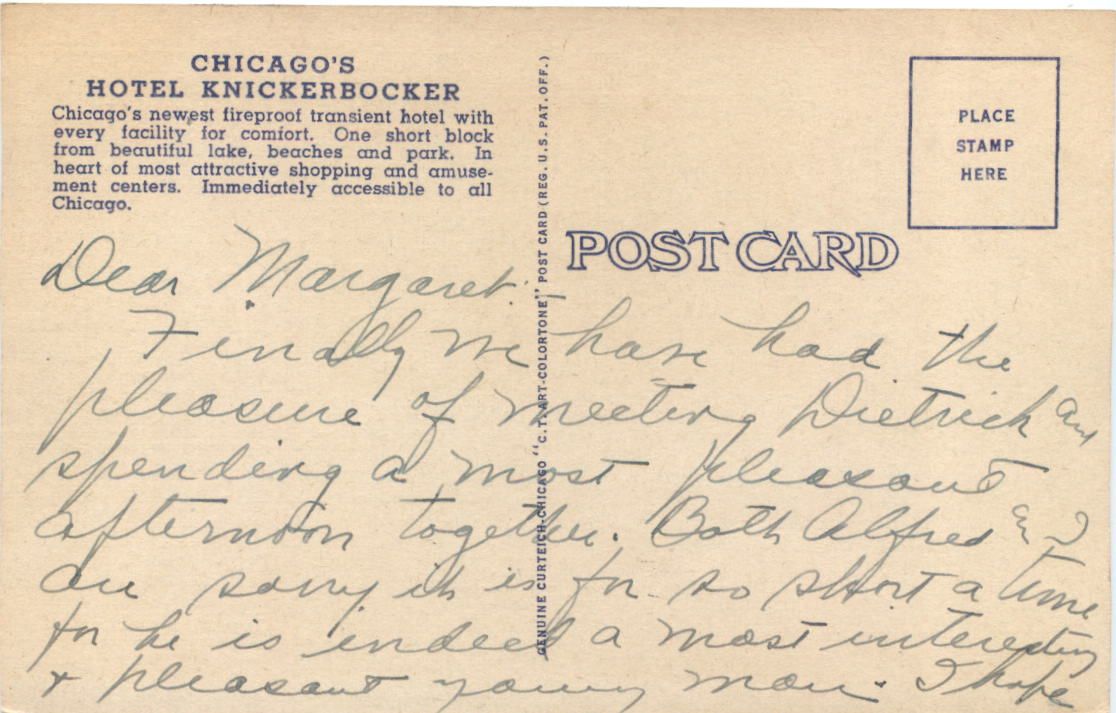 CHICAGO'S
HOTEL KNICKERBOCKER
Chicago's newest fireproof transient hotel with
every facility for comfort. One short block
from beautiful lake, beaches and park. In
heart of most attractive shopping and amuse-
ment centers. Immediately accessible to all
Chicago.
GENUINE CURTEICH-CHICAGO "C.T. ART-COLORTONE" POST CARD (REG. U.S. PAT. OFF.)
PLACE
STAMP
HERE
POST CARD
Dear Margaret:-
Finally we have had the
pleasure of meeting Dietrich and
spending a most pleasant
afternoon together. Both Alfred & I
are sorry it is for so short a time
for he is indeed a most interesting
& pleasant young man. I hope